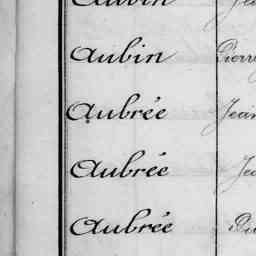 Aubin
Aubin Pierre
Aubrée Jean
Aubrée
Aubrée